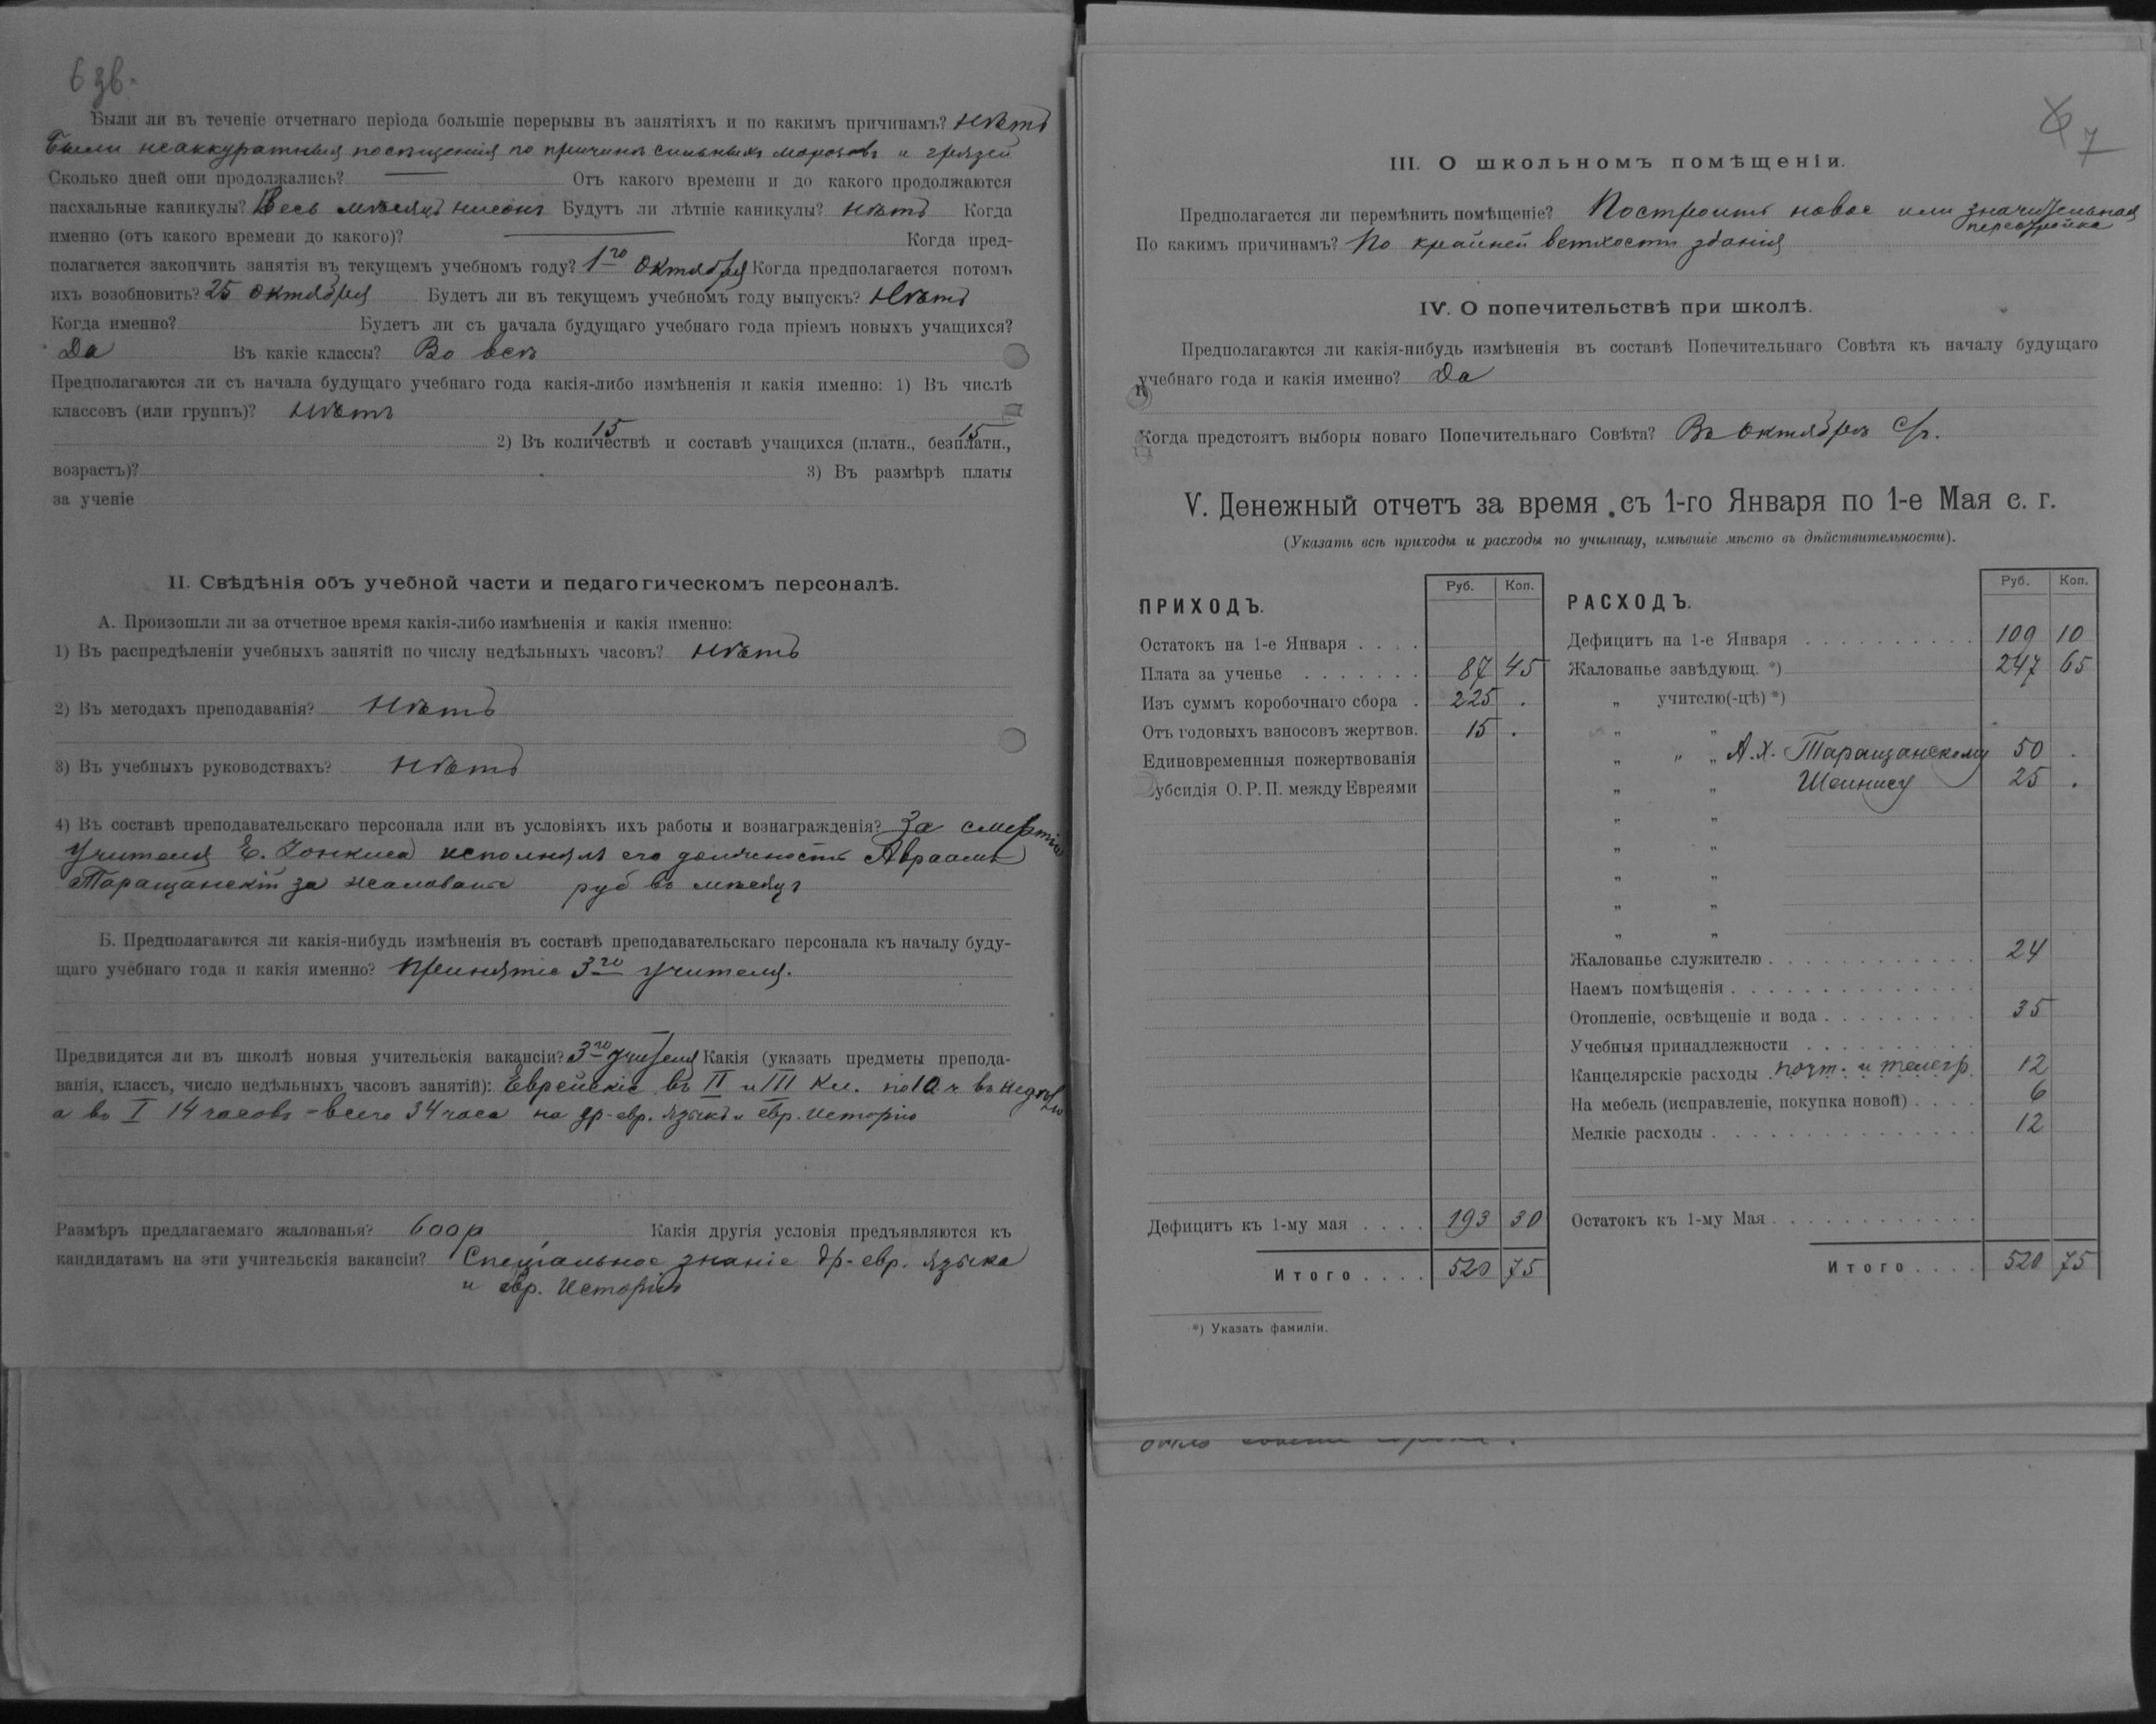 6 зв.
Были ли въ теченіе отчетнаго періода большіе перерывы въ занятіяхъ и по какимъ причинамъ? Нѣтъ
Были неаккуратныя посѣщенія по причинѣ сильныхъ морозовъ и грязей
Сколько дней они продолжались? — Отъ какого времени и до какого продолжаются
пасхальные каникулы? Весь мѣсяцъ нисонъ Будутъ ли лѣтніе каникулы? Нѣтъ Когда
именно (отъ какого времени до какого)? — Когда пред-
полагается закончить занятія въ текущемъ учебномъ году? 1го Октября Когда предполагается потомъ
ихъ возобновить? 25 Октября Будетъ ли въ текущемъ учебномъ году выпускъ? Нѣтъ
Когда именно? Будетъ ли съ начала будущаго учебнаго года пріемъ новыхъ учащихся?
Да Въ какіе классы? Во всѣ
Предполагаются ли съ начала будущаго учебнаго года какія-либо измѣненія и какія именно: 1) Въ числѣ
классовъ (или группъ)? Нѣтъ
15 15
2) Въ количествѣ и составѣ учащихся (платн., безплатн.,
возрастъ)? 3) Въ размѣрѣ платы
за ученіе
II. Свѣдѣнія объ учебной части и педагогическомъ персоналѣ.
А. Произошли ли за отчетное время какія-либо измѣненія и какія именно:
1) Въ распредѣленіи учебныхъ занятій по числу недѣльныхъ часовъ? Нѣтъ
2) Въ методахъ преподаванія? Нѣтъ
3) Въ учебныхъ руководствахъ? Нѣтъ
4) Въ составѣ преподавательскаго персонала или въ условіяхъ ихъ работы и вознагражденія? За смертію
Учителя Е. исполнялъ его должность Авраамъ
Таращанскій за жалованіе руб въ мѣсяцъ
Б. Предполагаются ли какія-нибудь измѣненія въ составѣ преподавательскаго персонала къ началу буду-
щаго учебнаго года и какія именно? Принятіе 3го учителя.
Предвидятся ли въ школѣ новыя учительскія вакансіи? 3го учителя Какія (указать предметы препода-
ванія, классъ, число недѣльныхъ часовъ занятій): Еврейскіе въ II и III Кл. по 10 ч въ недѣлю
а въ I 14 часовъ = всего 34 часа на др-евр. языкъ и евр. Исторію
Размѣръ предлагаемаго жалованья? 600 р Какія другія условія предъявляются къ
кандидатамъ на эти учительскія вакансіи? Спеціальное знаніе др-евр. языка
и евр. Исторіи
7
III. О школьномъ помѣщеніи.
Предполагается ли перемѣнить помѣщеніе? Построить новое или значительная
перестройка
По какимъ причинамъ? По крайней ветхости зданія
IV. О попечительствѣ при школѣ.
Предполагаются ли какія-нибудь измѣненія въ составѣ Попечительнаго Совѣта къ началу будущаго
учебнаго года и какія именно? Да
Когда предстоятъ выборы новаго Попечительнаго Совѣта? Въ Октябрѣ с/г.
V. Денежный отчетъ за время съ 1-го Января по 1-е Мая с. г.
(Указать всѣ приходы и расходы по училищу, имѣвшіе мѣсто въ дѣйствительности).
ПРИХОДЪ. Руб. Коп.
Остатокъ на 1-е Января . . . .
Плата за ученье . . . . . . . 87 45
Изъ суммъ коробочнаго сбора . 225 .
Отъ годовыхъ взносовъ жертвов. 15 .
Единовременныя пожертвованія
Субсидія О. Р. П. между Евреями
Дефицитъ къ 1-му мая . . . . 193 30
Итого . . . . 520 75
РАСХОДЪ. Руб. Коп.
Дефицитъ на 1-е Января . . . . . . . . . . 109 10
Жалованье завѣдующ. *) 247 65
„ учителю(-цѣ) *)
„ „
„ „ „ А. Х. Таращанскому 50 .
„ „ Шейнису 25 .
„ „
„ „
„ „
„ „
„ „
Жалованье служителю . . . . . . . . . . . . 24
Наемъ помѣщенія . . . . . . . . . . . . . .
Отопленіе, освѣщеніе и вода . . . . . . . . . 35
Учебныя принадлежности . . . . . . . . . .
Канцелярскіе расходы почт. и телегр. 12
На мебель (исправленіе, покупка новой) . . . . 6
Мелкіе расходы . . . . . . . . . . . . . . . 12
Остатокъ къ 1-му Мая . . . . . . . . . . . .
Итого . . . . 520 75
*) Указать фамиліи.